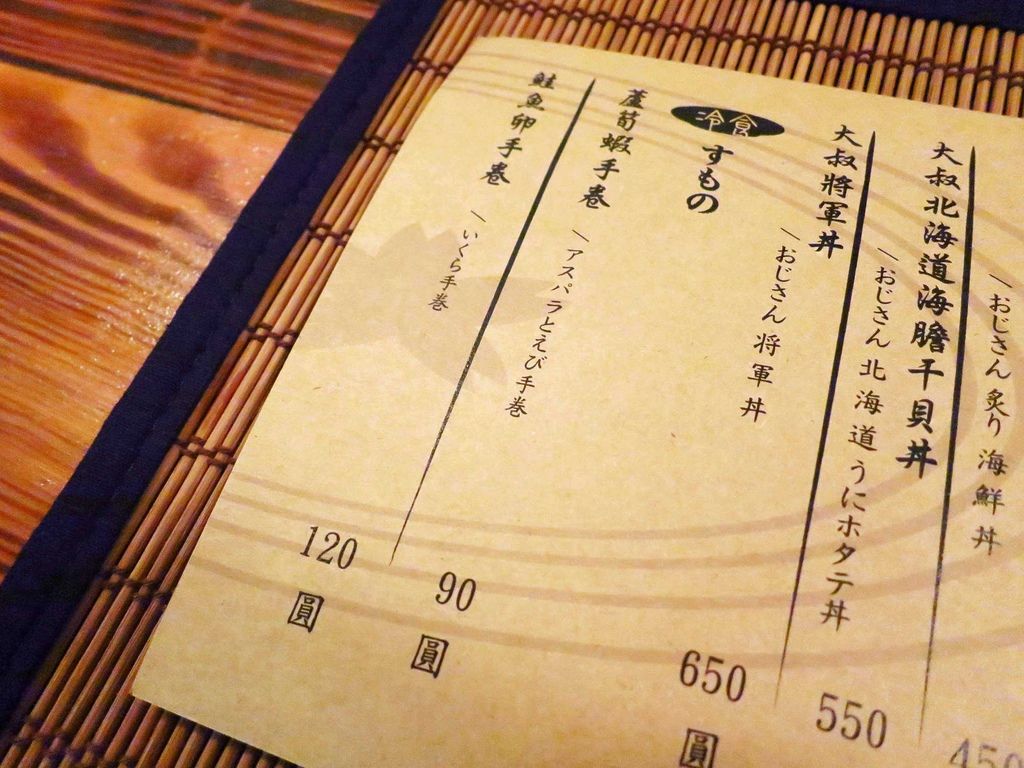 おじさん 炙り 海鮮丼
大叔北海道海膽干貝丼
おじさん 北海道 うにホタテ丼
550
大叔將軍丼
おじさん 将軍丼
650
圓
冷食
すもの
蘆筍蝦手巻
アスパラとえび手巻
90
圓
鮭魚卵手巻
いくら手巻
120
圓